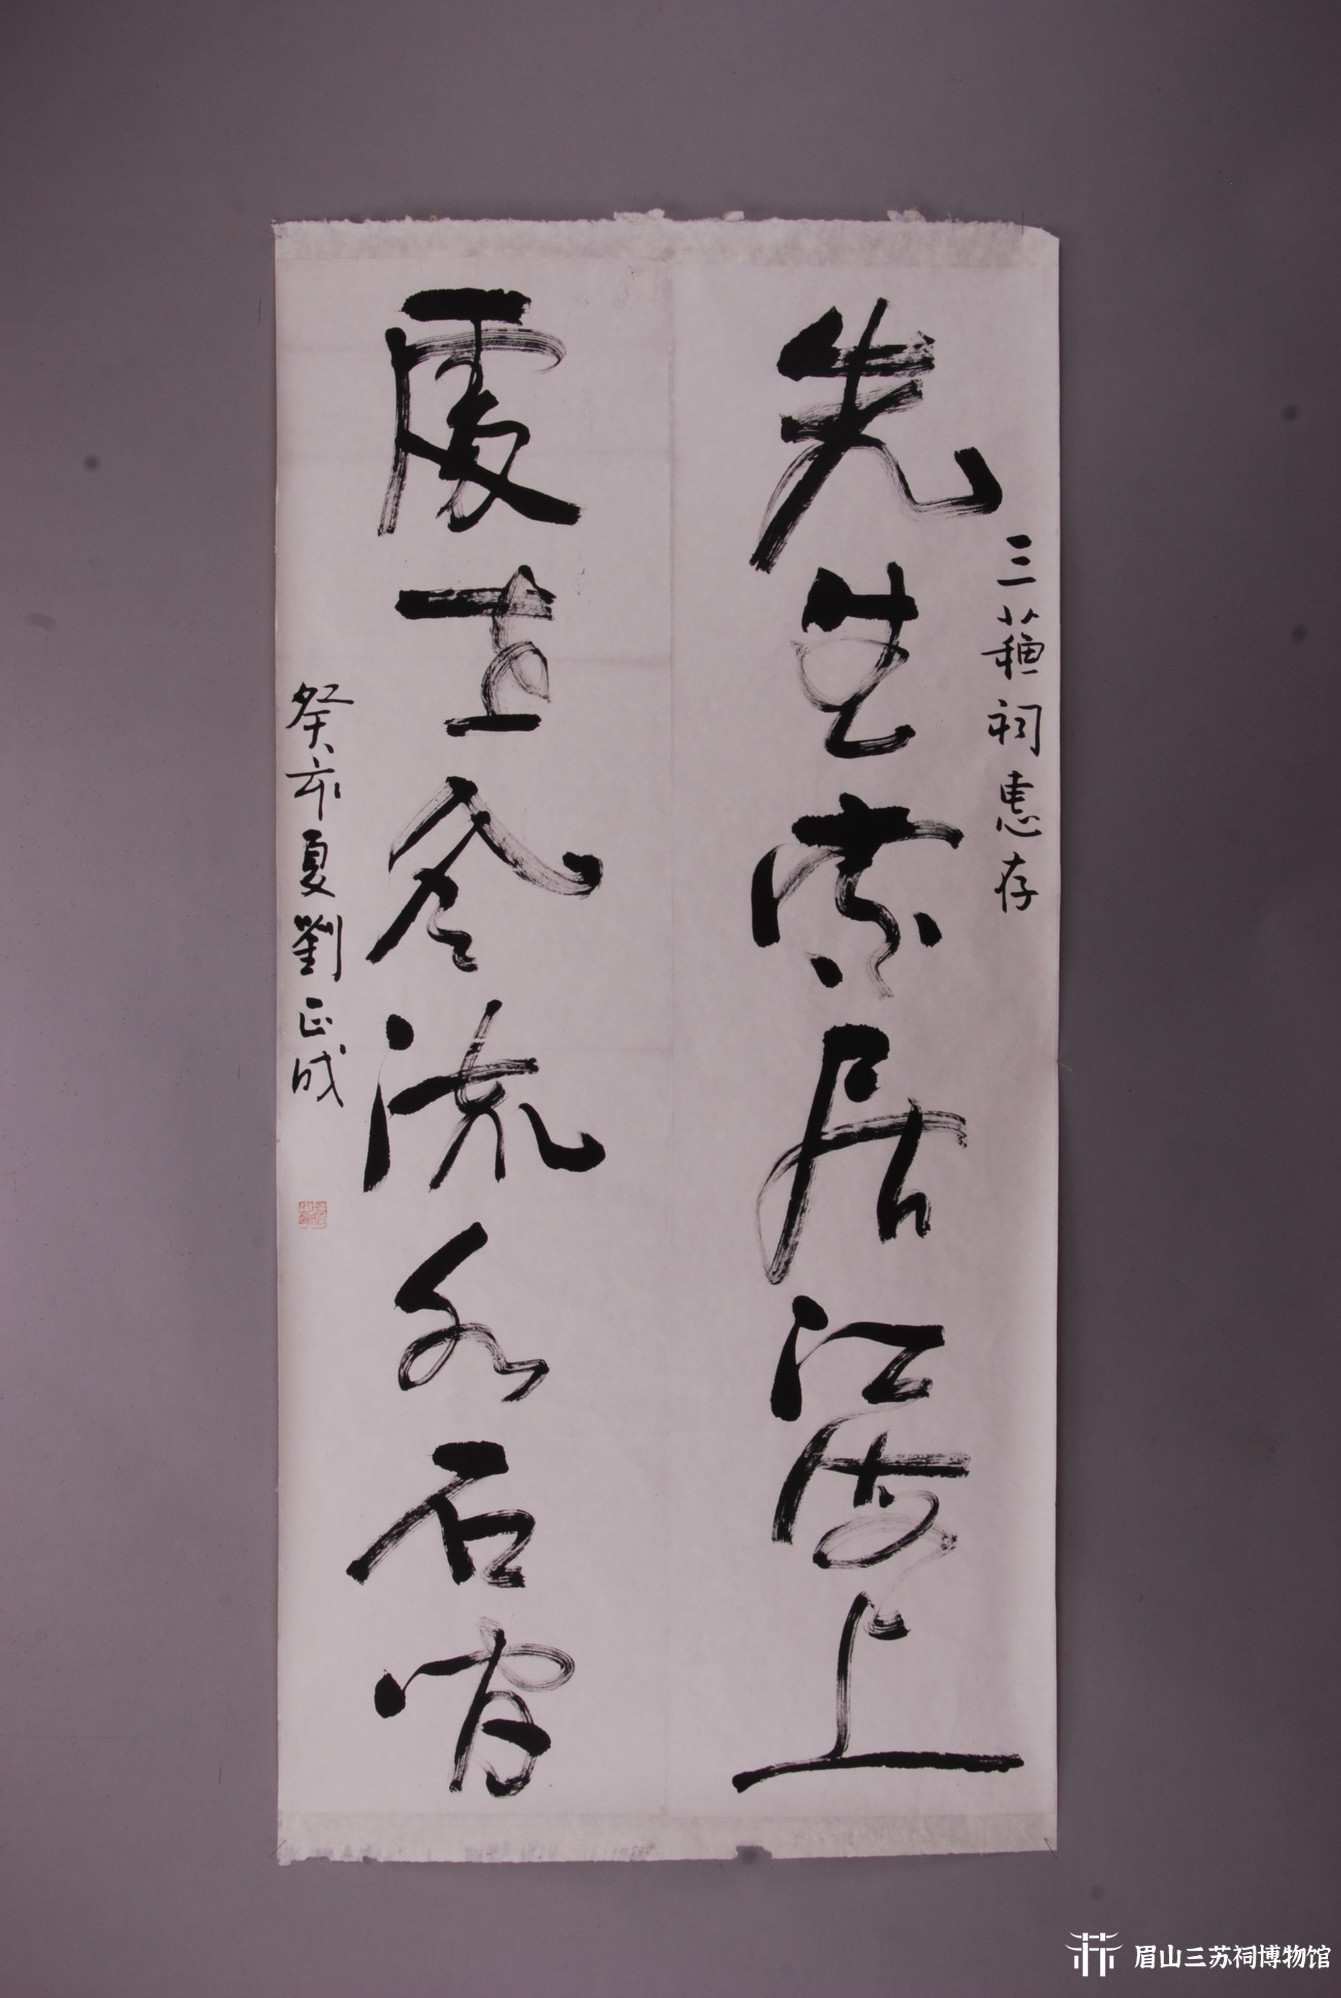 三蘇祠惠存
先生索居江海上
處士風流水石間
癸亥夏劉正成
眉山三苏祠博物馆